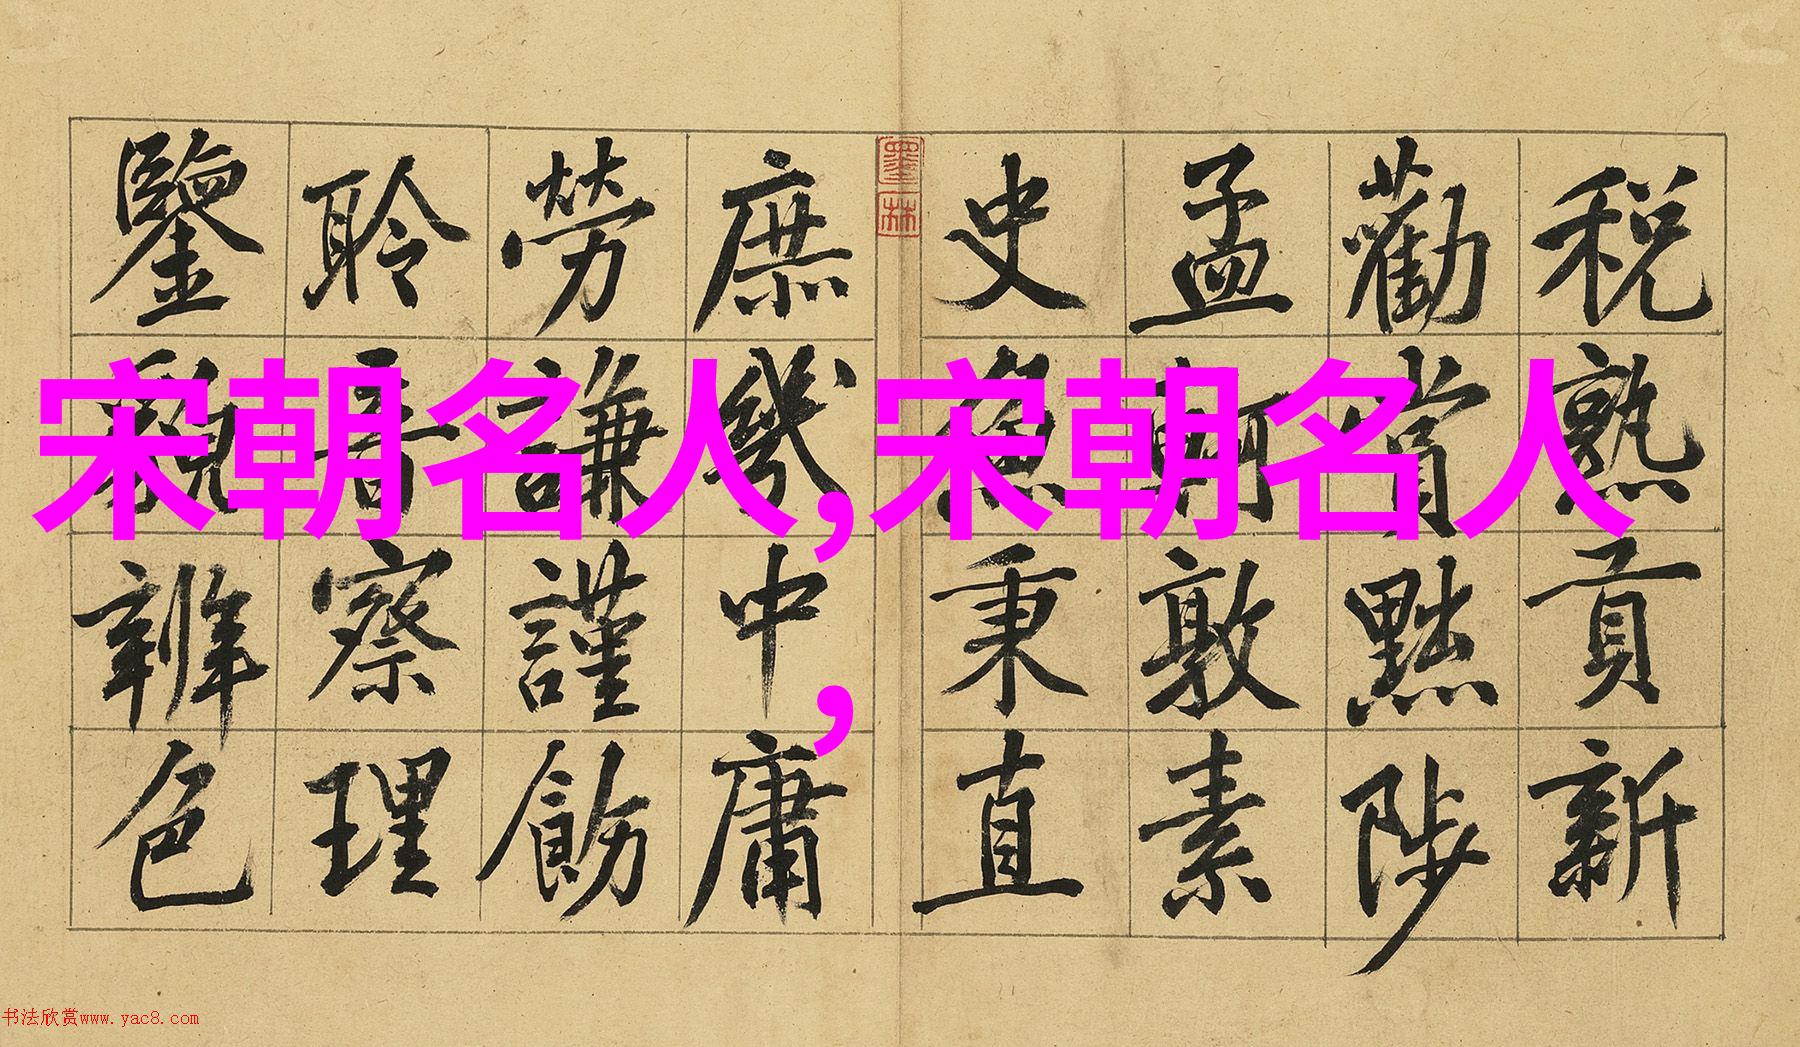 税熟貢新
勸賞黜陟
孟軻敦素
史魚秉直
墨林
庶幾中庸
勞謙謹飭
聆音察理
鑒貌辨色
宋朝名人,宋朝名人
,
书法欣赏www.yac8.com